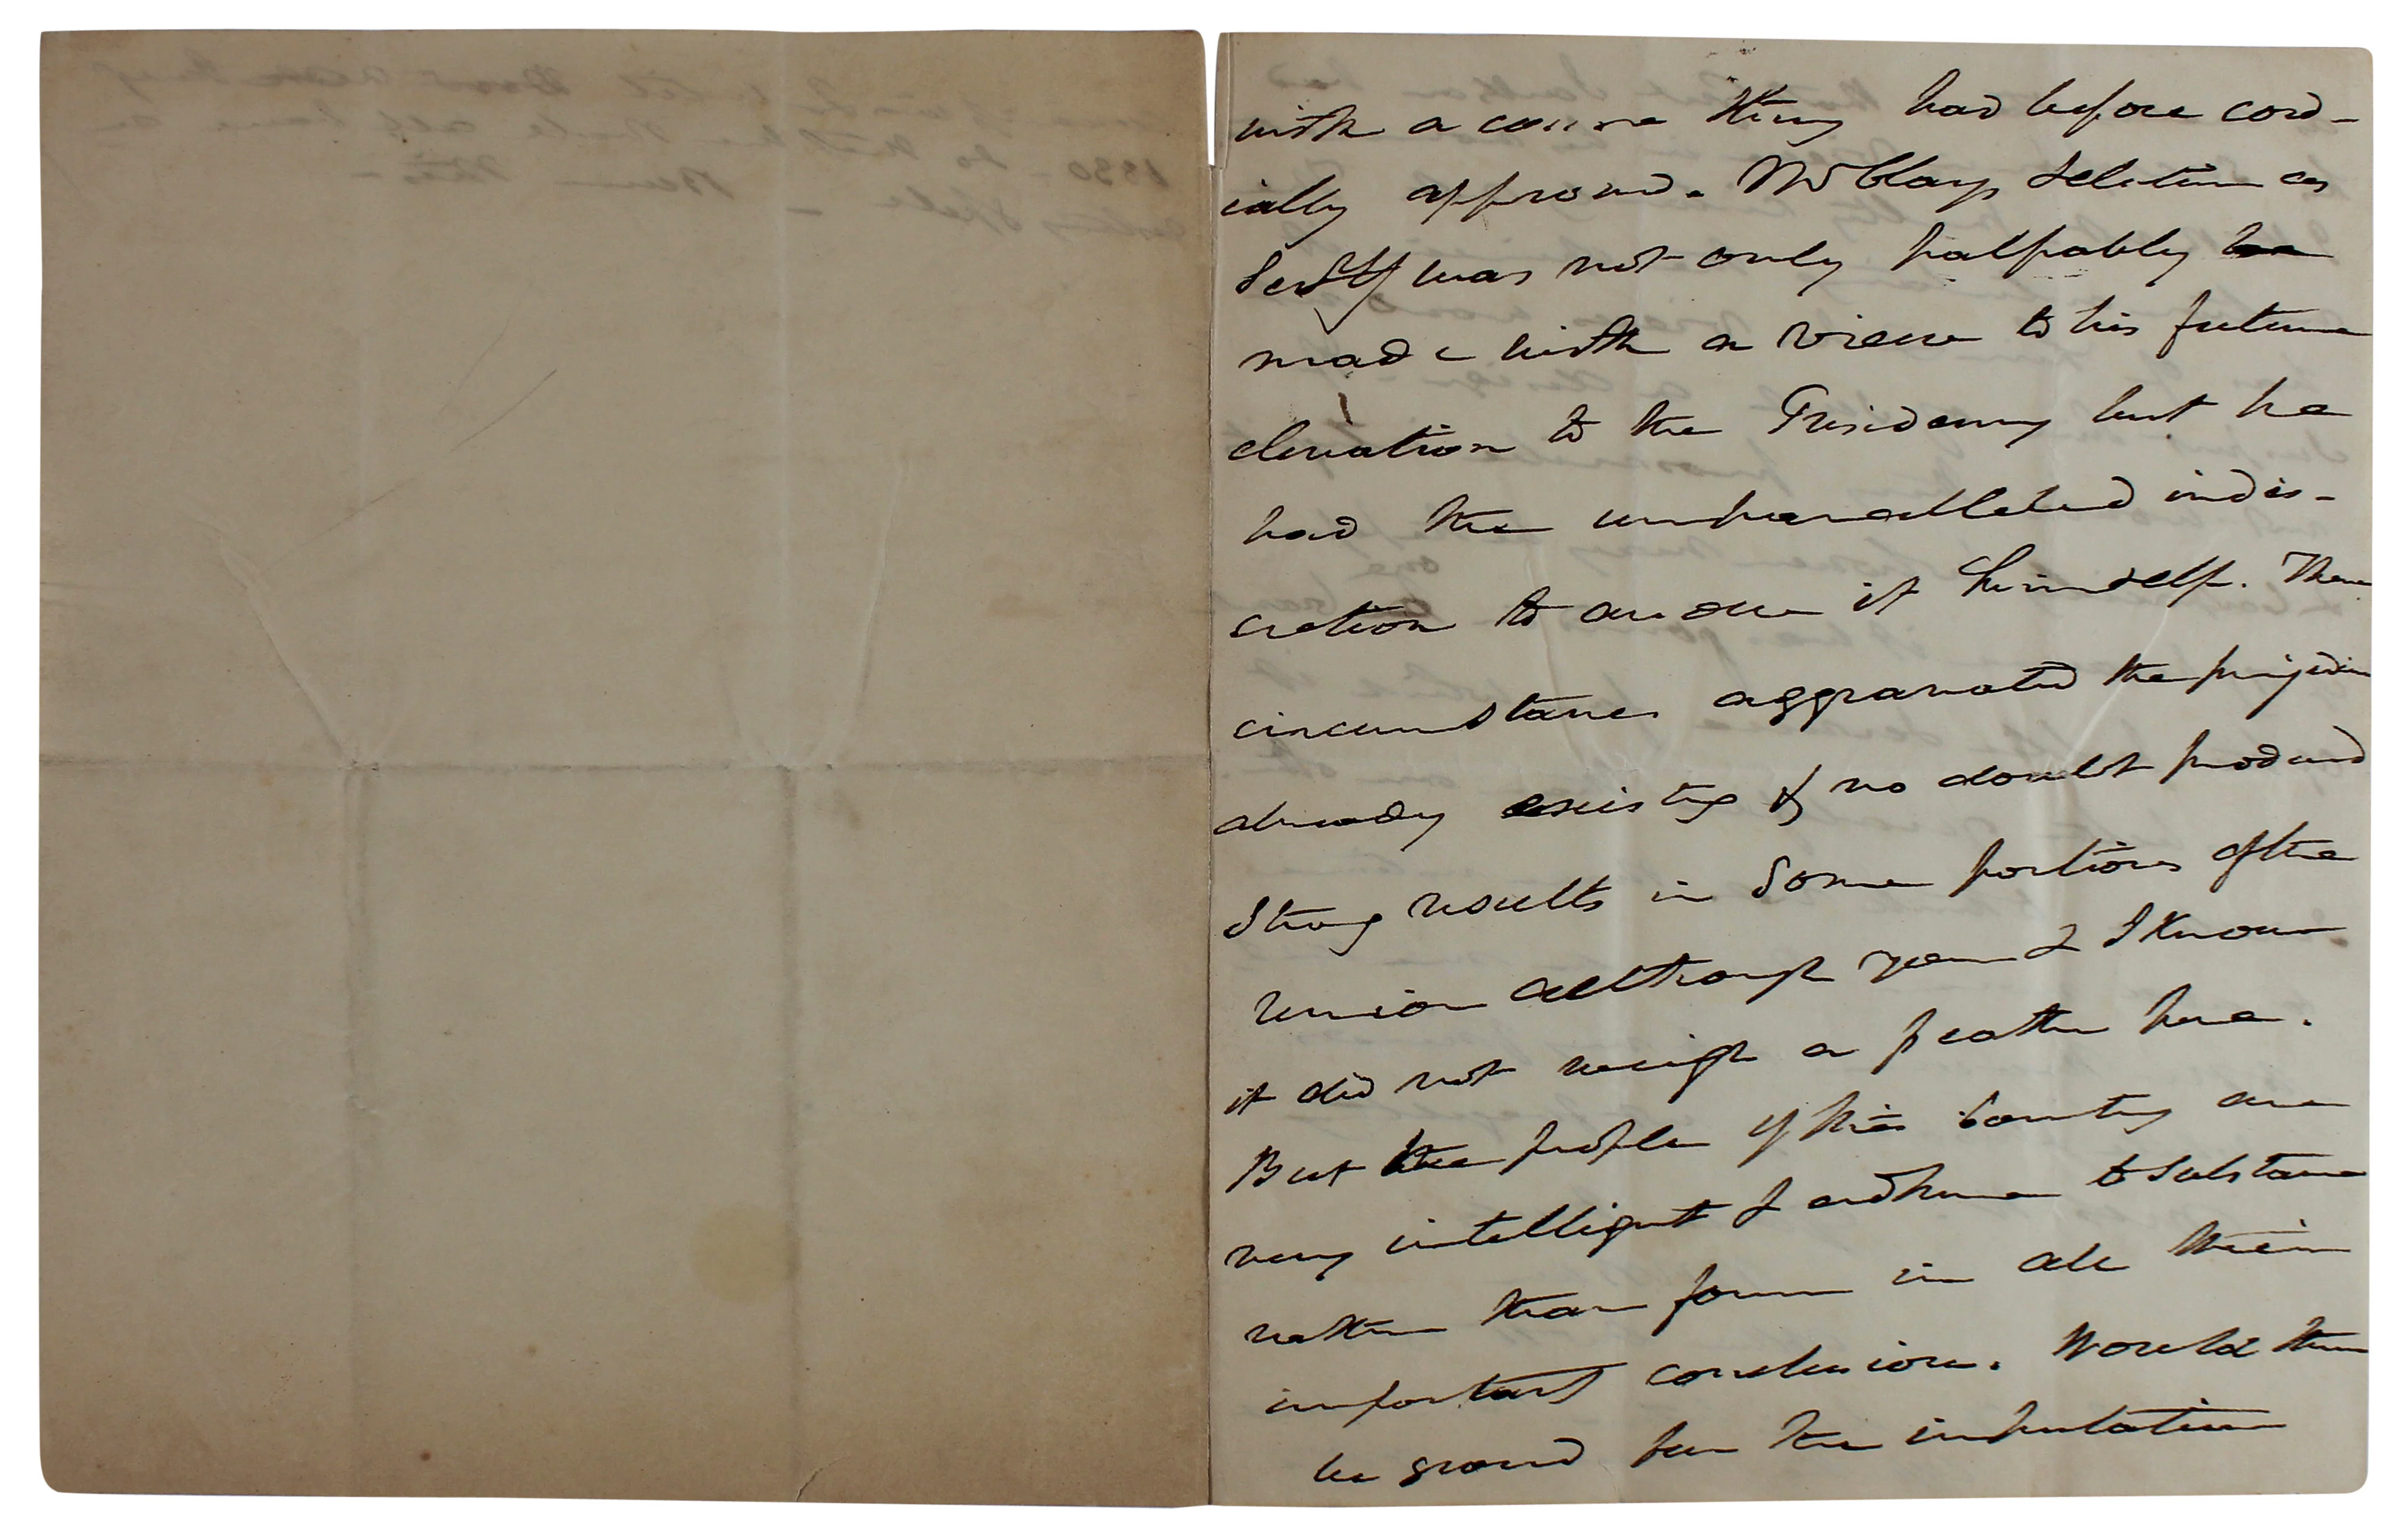 with a course they had before cord-
ially approved. Mr Clays selection as
Secty was not only palpably
made with a view to his future
elevation to the Presidency but he
had the unparallelled indis-
cretion to avow it himself. These
circumstances aggravated the prejudice
already existing & no doubt produced
strong results in some portions of the
Union although you & I know
it did not weigh a feather here.
But the people of this Country are
very intelligent & adhere to substance
rather than form in all their
important conclusions. Would there
be ground for the imputation